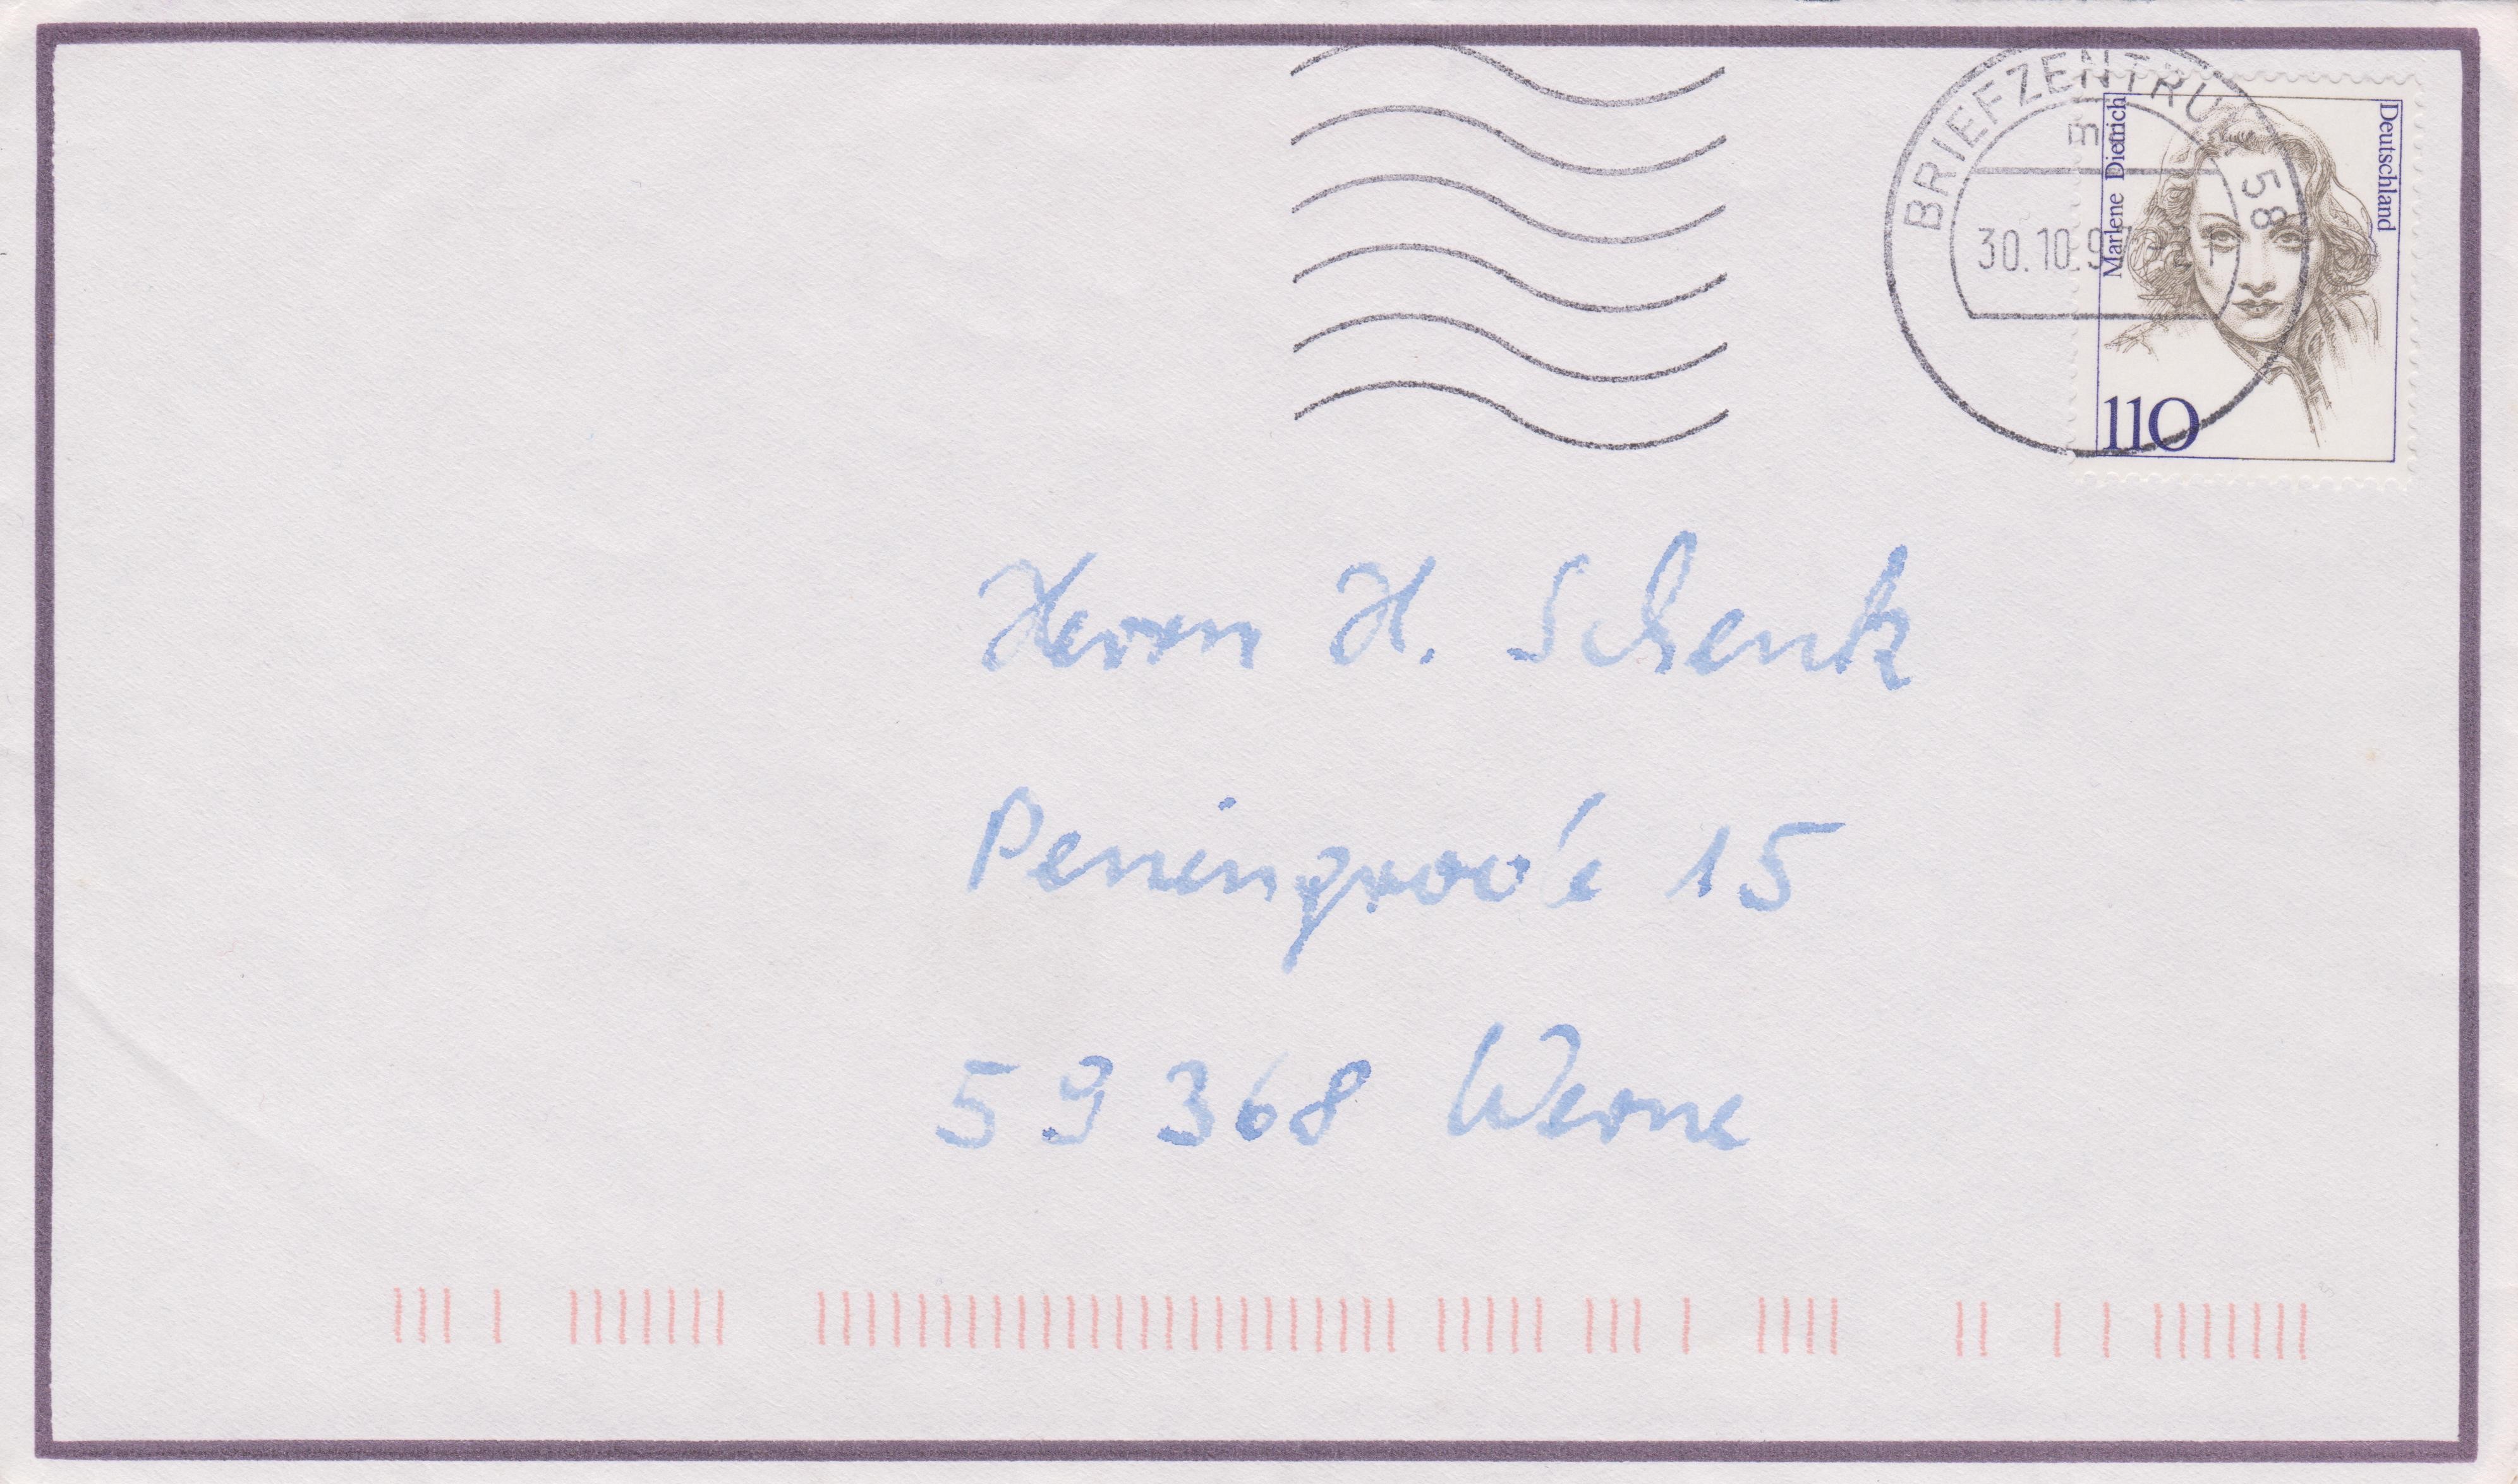 BRIEFZENTRUM 58
m
30.10.97
Marlene Dietrich
Deutschland
110
Herrn H. Schenk
Peningrode 15
59368 Werne